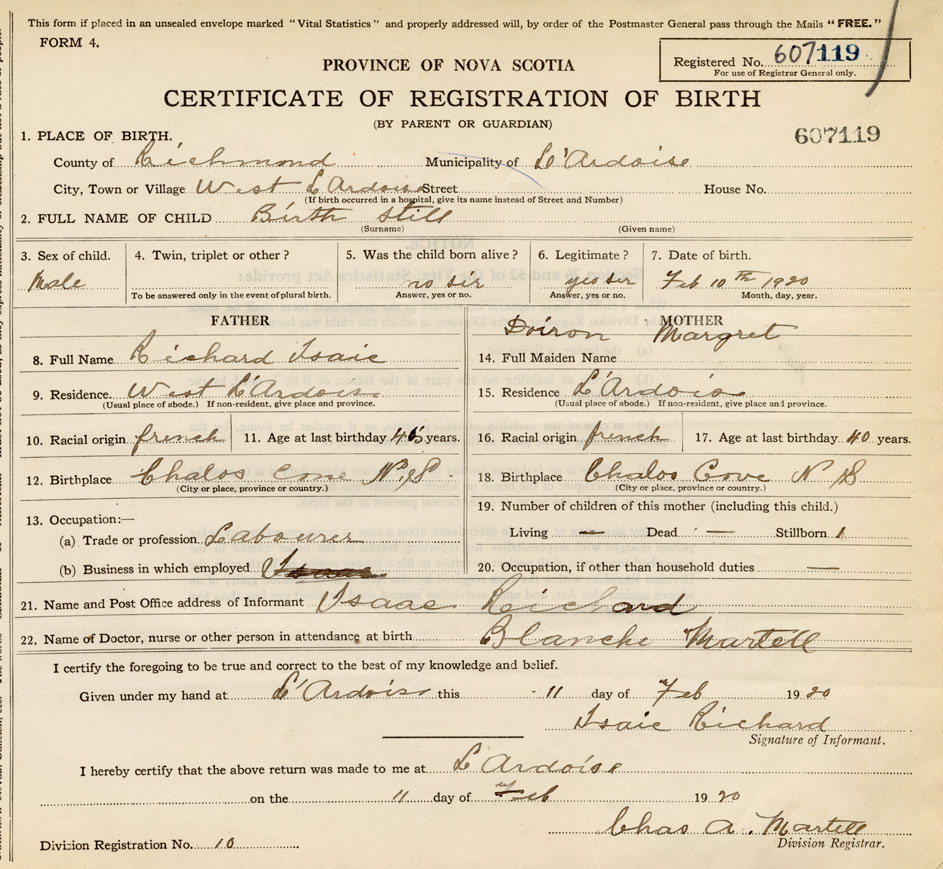 This form if placed in an unsealed envelope marked "Vital Statistics" and properly addressed will, by order of the Postmaster General pass through the Mails "FREE."
FORM 4.
Registered No. 607119
For use of Registrar General only.
PROVINCE OF NOVA SCOTIA
CERTIFICATE OF REGISTRATION OF BIRTH
(BY PARENT OR GUARDIAN)
607119
1. PLACE OF BIRTH.
County of Richmond Municipality of L'Ardoise
City, Town or Village West L'Ardoise Street House No.
(If birth occurred in a hospital, give its name instead of Street and Number)
2. FULL NAME OF CHILD Birth still
(Surname) (Given name)
3. Sex of child. 4. Twin, triplet or other? 5. Was the child born alive? 6. Legitimate? 7. Date of birth.
Male no sir yes sir Feb 10th 1920
To be answered only in the event of plural birth. Answer, yes or no. Answer, yes or no. Month, day, year.
FATHER MOTHER
Doiron Margret
8. Full Name Richard Isaic 14. Full Maiden Name
9. Residence. West L'Ardois 15. Residence L'Ardois
(Usual place of abode.) If non-resident, give place and province. (Usual place of abode.) If non-resident, give place and province.
10. Racial origin french 11. Age at last birthday years. 16. Racial origin french 17. Age at last birthday 40 years.
12. Birthplace Chalos cove N.S 18. Birthplace Chalos Cove N S
(City or place, province or country.) (City or place, province or country.)
19. Number of children of this mother (including this child.)
13. Occupation:—
(a) Trade or profession Labourer Living — Dead — Stillborn 1
(b) Business in which employed 20. Occupation, if other than household duties —
21. Name and Post Office address of Informant Isaac Richard
22. Name of Doctor, nurse or other person in attendance at birth Blanche Martell
I certify the foregoing to be true and correct to the best of my knowledge and belief.
Given under my hand at L'Ardois this 11 day of Feb 1920
Isaic Richard
Signature of Informant.
I hereby certify that the above return was made to me at L'Ardoise
on the 11 day of Feb 1920
Chas A. Martell
Division Registration No. 10 Division Registrar.